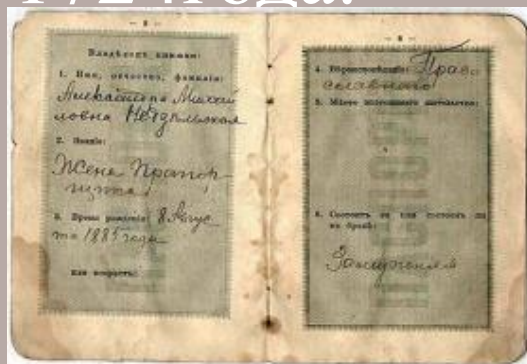 1724 года.
— 2 —
Владѣлецъ книжки:
1. Имя, отчество, фамилія:
Александра Михай
ловна
2. Званіе:
Жена Прапор-
щика
3. Время рожденія: 8 Авгус
та 1885 года
или возрастъ:
4. Вѣроисповѣданіе: Право
славнаго
5. Мѣсто постояннаго жительства:
6. Состоитъ ли или состоялъ ли
въ бракѣ:
Замужняя